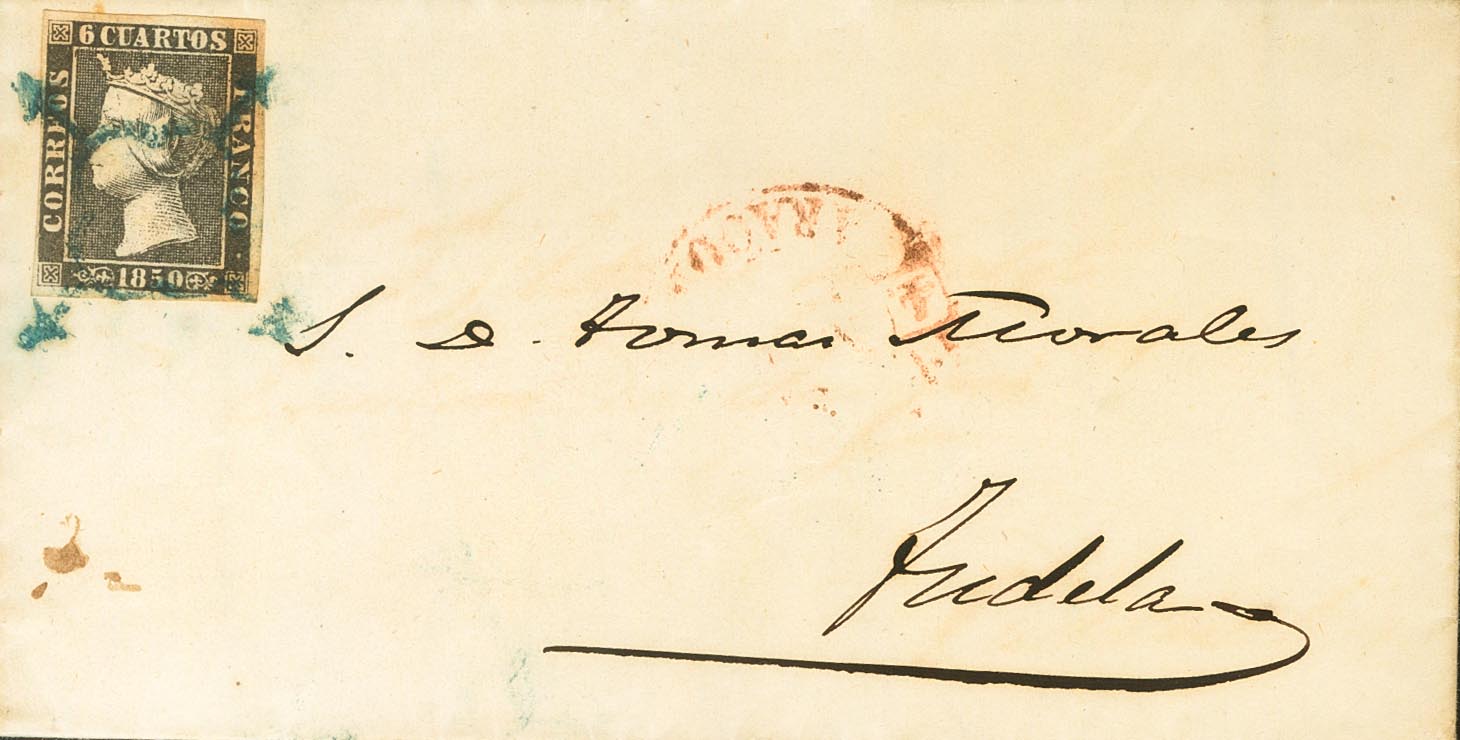 6 CUARTOS
CORREOS
FRANCO.
1850
S. D. Tomas Morales
Tudela